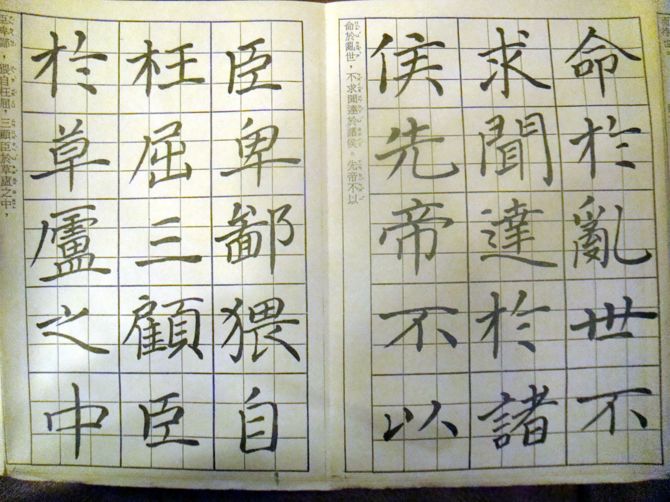 命於亂世不
求聞達於諸
侯先帝不以
命於亂世，不求聞達於諸侯。先帝不以
臣卑鄙猥自
枉屈三顧臣
於草廬之中
臣卑鄙，猥自枉屈，三顧臣於草廬之中，